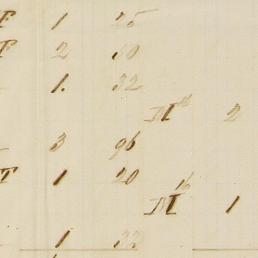 F 1 25
F 2 50
1. 32
M 2
3 96
T 1 20
M 16 1
1 32